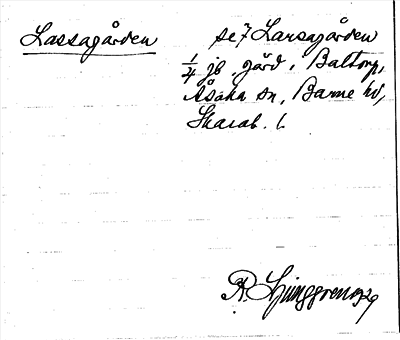 Lassagården
se 7 Larsagården
1/4 jb. gård, Baltorp,
Åsaka sn, Barne hd,
Skarab. l.
R. Ljunggren 1929